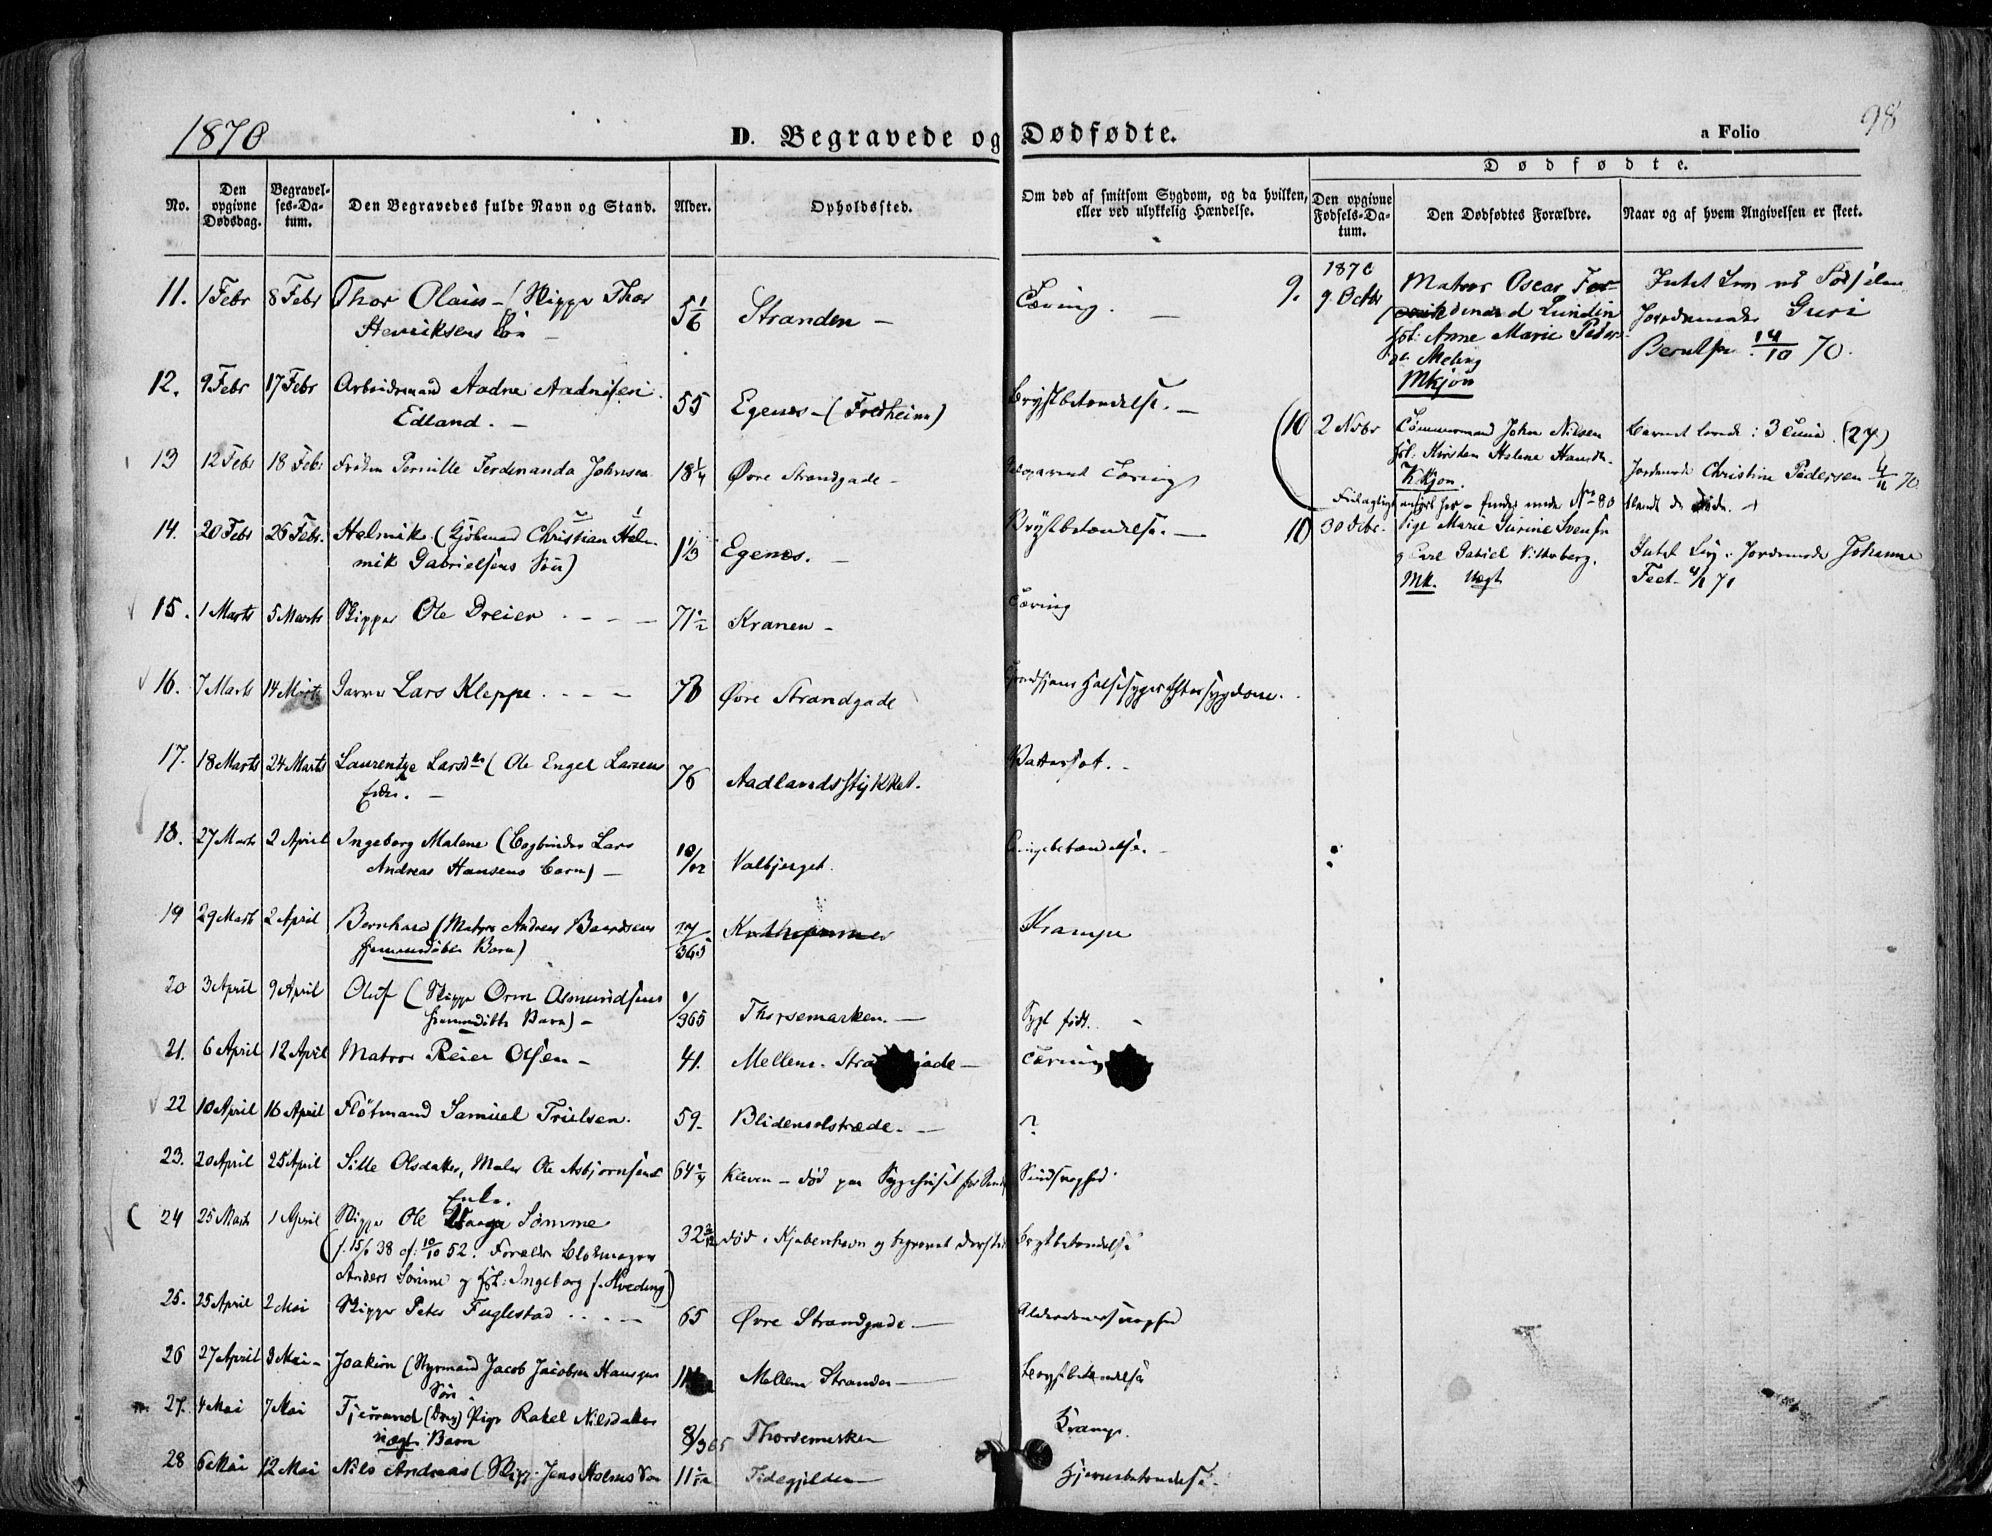 1870
D. Begravede og Dødfødte.
a Folio
98
Dødfødte.
No.
Den opgivne Dødsdag.
Begravelses-Datum.
Den Begravedes fulde Navn og Stand.
Alder.
Opholdssted.
Om død af smitsom Sygdom, og da hvilken,
eller ved ulykkelig Hændelse.
Den opgivne Fødsels-Datum.
Den Dødfødtes Forældre.
Naar og af hvem Angivelsen er skeet.
11. 1 Febr 8 Febr Thor Olaus - (Skipper Thor
Henriksens Søn 5 1/6 Stranden - Tæring.
12. 9 Febr 17 Febr Arbeidsmand Aadne Aadnesen
Edland. - 55 Egenes - (Fredheim) Brystbetændelse. -
13 12 Febr 18 Febr Frøken Pernille Ferdinanda Johnsen 18 1/4 Øvre Strandgade - Tæring
14. 20 Febr 26 Febr. Helmik (Christian Hel-
mik Gabrielsens Søn) 1 1/3 Egenes. - Brystbetændelse. -
15. 1 Marts 5 Marts Skipper Ole Dreier 71 1/2 Kranen - Tæring
16. 7 Marts 14 Marts Lars Kleppe. Øvre Strandgade
17. 18 Marts 24 Marts Laurentze Larsdtr (Ole Engel Larsens
Enke. - 76 Aadlandsstykket. Vattersot. -
18. 27 Marts 2 April Ingeborg Malene (Bogbinder Lars
Andreas Hansens Barn) - 10/12 Valbjerget.
19 29 Marts 2 April Bernhard (Matros Andreas Baardsens
hjemmedøbte Barn) 27/365 Krampe
20 3 April 9 April Oluf (Skipper Orm Asmundsens
hjemmedøbte Barn) - 1/365 Thorsemarken. - Sygt født. -
21. 6 April 12 April Matros Reier Olsen - 41. Mellem-Strandgade - Tæring
22 10 April 16 April Fløtmand Samuel Trulsen. 59. Blidensolstræde. - ?
23. 20 April 25 April Sille Olsdatter, Maler Ole Asbjørnsens
Enke. 64 1/4 Kleven - død paa Sygehuset for Sind Sindsvaghed.
24 25 Marts 1 April Skipper Ole Vaage Sømme
(f. 15/6 38 cf. 10/10 52. Forældre Blokmager
Anders Sømme og Hst: Ingeborg f. Hveding) 32 død i Kjøbenhavn og begravet dersted Brystbetændelse
25. 25 April 2 Mai Skipper Peter Fuglestad 65 Øvre Strandgade. - Alderdomssvaghed
26 27 April 3 Mai - Joakim (Styrmand Jacob Jacobsen
Søn Mellem Stranden - Brystbetændelse
27. 4 Mai 7 Mai Tjerand (Dreng) Pige Rakel Nilsdatters
uægte Barn 8/365 Thorsemarken Krampe.
28 6 Mai 12 Mai Nils Andreas (Skipp. Jens Holms Søn 11 Tidegjelden - Hjernebetændelse.
9. 1870
9 Octbr Matros Oscar
Lundin
Hst: Anne Marie Peders-
Meling
Mkjøn
Intet
Jordemoder Guri
Berntsen 14/10 70.
10 2 Nvbr Tømmermand John Nilsen
Hst. Kirsten Helene
Kkjøn.
Barnet levede i 3 (27)
Jordemoder Christine Pedersen 4/11 70
Feilagtigt anført her - findes under No 80 blandt de døde.
10 30 Decbr. Pige Marie Surine Svensen
og Carl Gabriel
Mk. Uægte
Intet Liv. Jordemoder Johanne
Feet 4/1 71